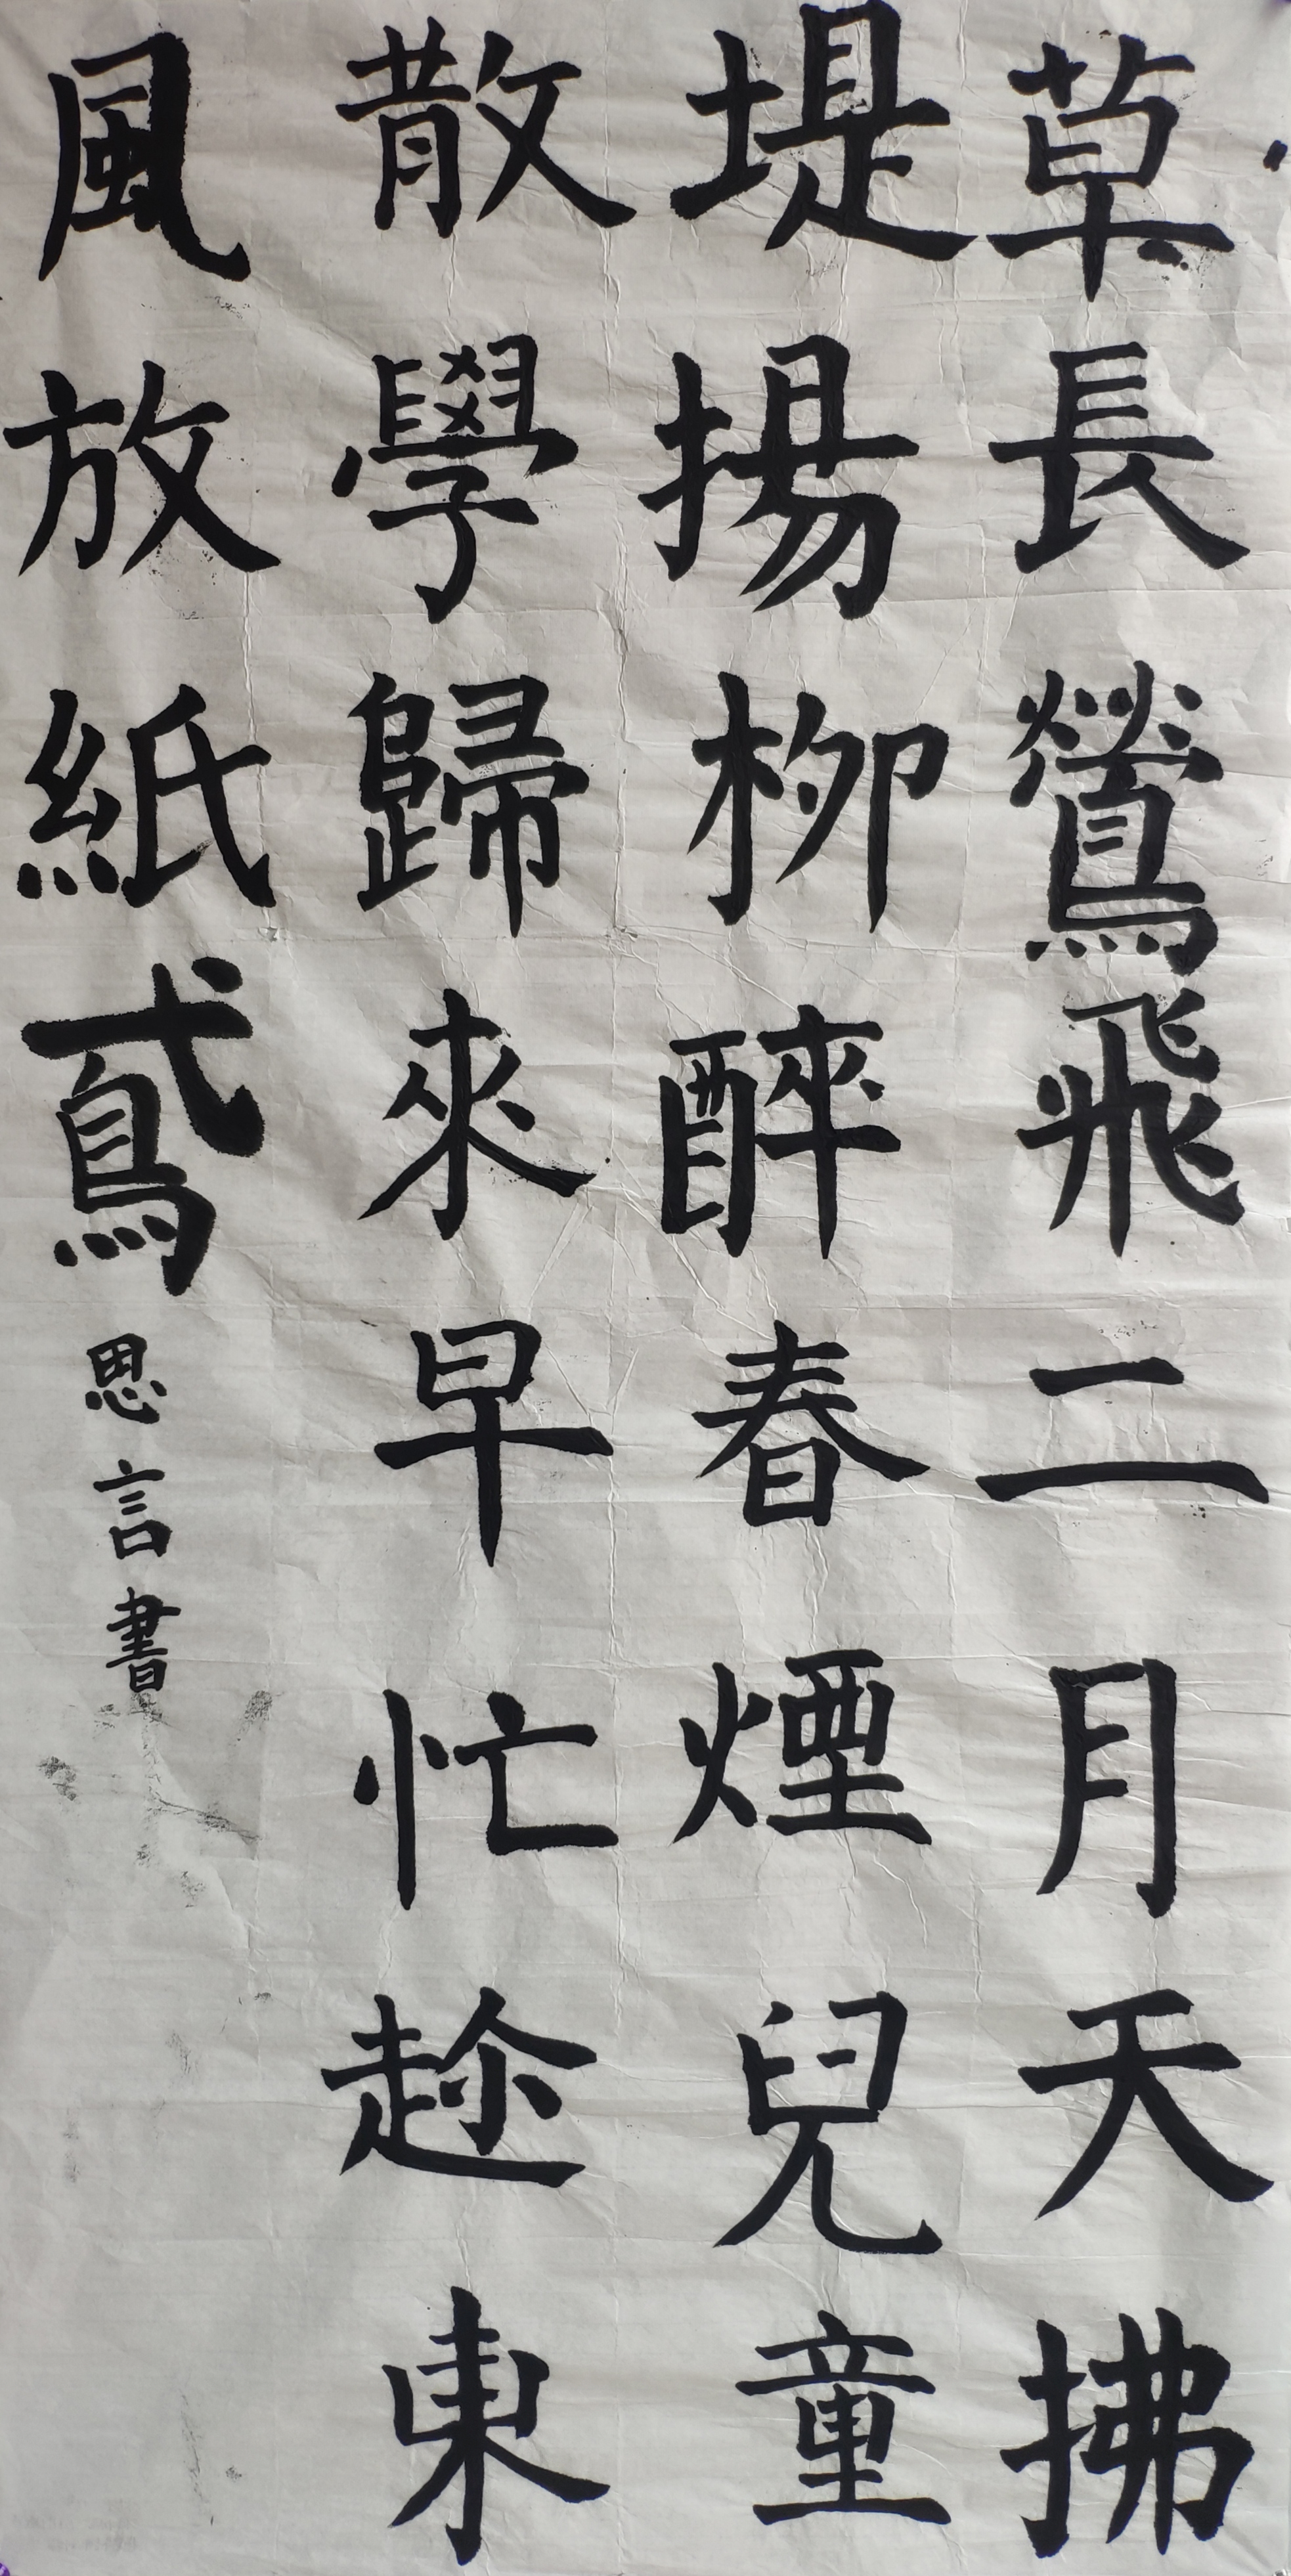 草長鶯飛二月天拂
堤揚柳醉春煙兒童
散學歸來早忙趂東
風放紙鳶思言書